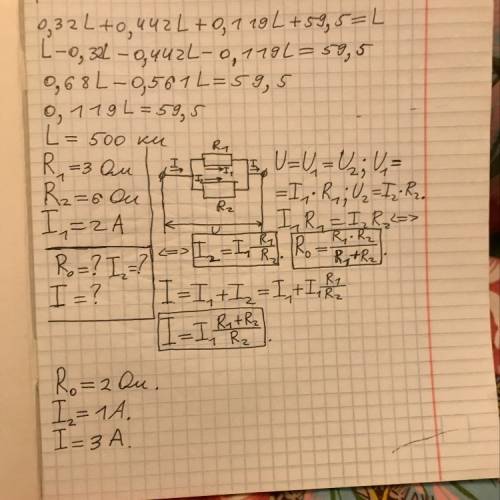 0,32L+0,442L+0,119L+59,5=L
L-0,32L-0,442L-0,119L=59,5
0,68L-0,561L=59,5
0,119L=59,5
L = 500 км
R₁=3 Ом
R₂=6 Ом
I₁=2 А
R₀=? I₂=?
I=?
R₁
I I₁ I
I₂
R₂
U
U=U₁=U₂; U₁=
=I₁·R₁; U₂=I₂·R₂.
I₁R₁=I₂R₂<=>
<=> I₂=I₁ R₁/R₂. R₀=R₁·R₂/R₁+R₂.
I=I₁+I₂=I₁+I₁ R₁/R₂
I=I₁ R₁+R₂/R₂.
R₀=2 Ом.
I₂=1А.
I=3 А.